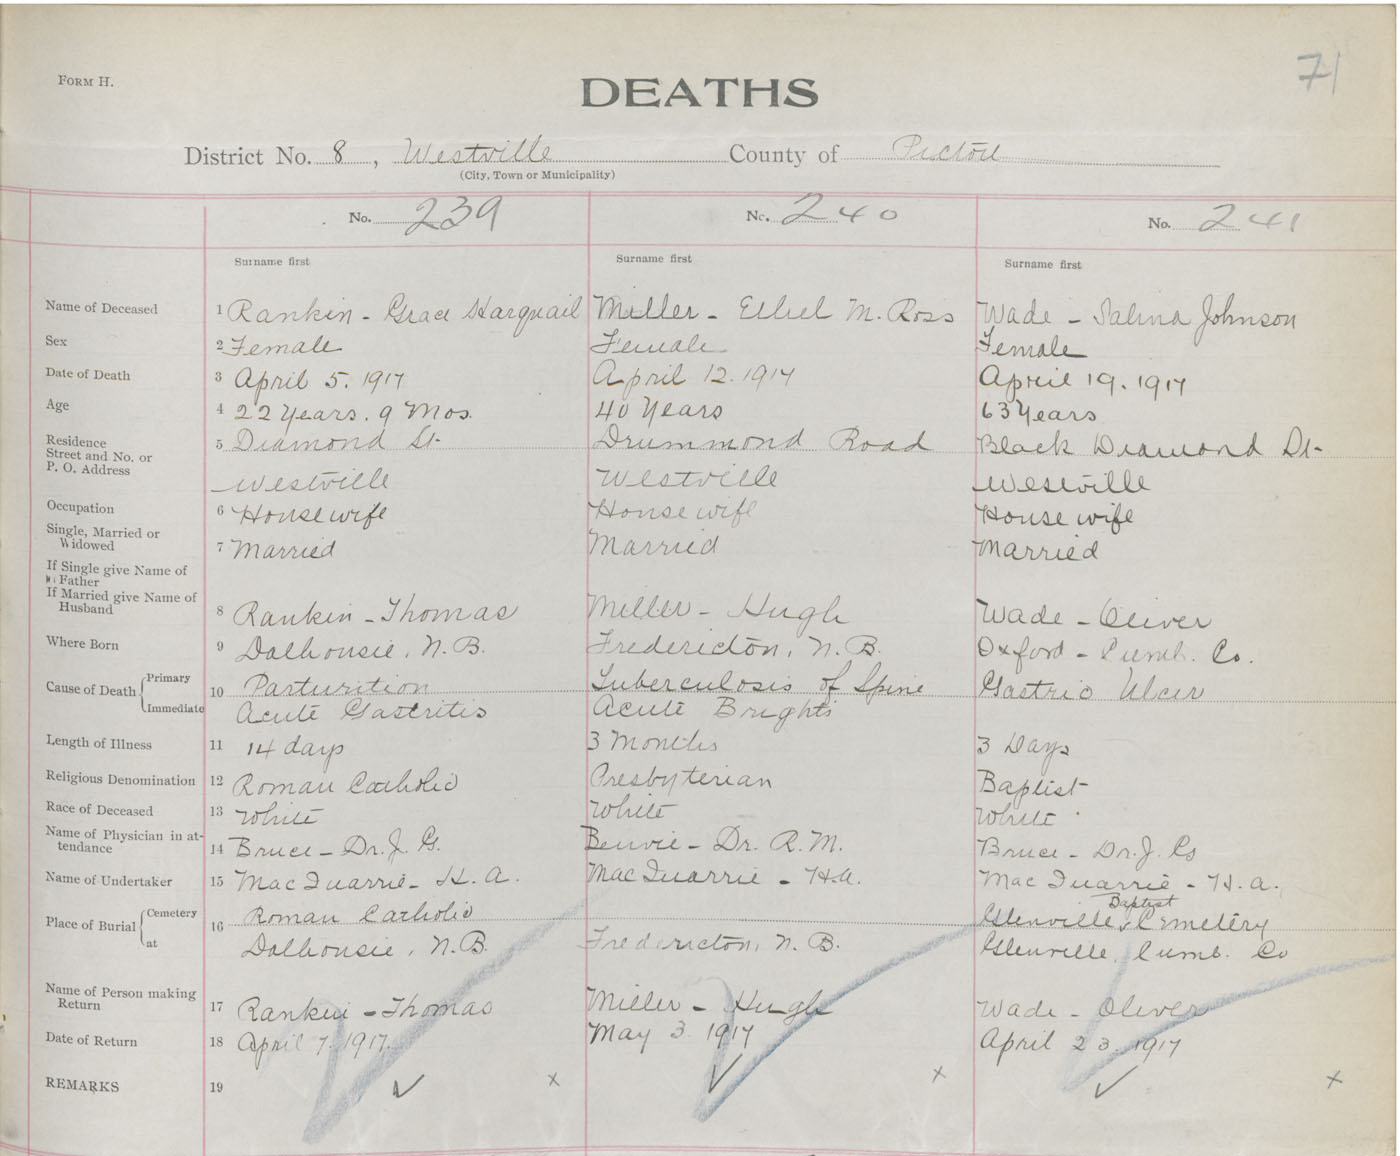 71
FORM H.
DEATHS
District No. 8, Westville County of Pictou
(City, Town or Municipality)
No. 239 No. 240 No. 241
Surname first Surname first Surname first
Name of Deceased 1 Rankin - Grace Harquail Miller - Ethel M. Ross Wade - Salina Johnson
Sex 2 Female Female Female
Date of Death 3 April 5. 1917 April 12. 1917 April 19. 1917
Age 4 22 Years. 9 Mos. 40 Years 63 Years
Residence
Street and No. or 5 Diamond St- Drummond Road Black Diamond St-
P. O. Address Westville Westville Westville
Occupation 6 Housewife Housewife Housewife
Single, Married or
Widowed 7 Married Married Married
If Single give Name of
Father
If Married give Name of
Husband 8 Rankin - Thomas Miller - Hugh Wade - Oliver
Where Born 9 Dalhousie, N.B. Fredericton, N.B. Oxford - Cumb. Co.
Cause of Death Primary 10 Parturition Tuberculosis of Spine Gastric Ulcer
Immediate Acute Gastritis Acute Brights
Length of Illness 11 14 days 3 Months 3 Days
Religious Denomination 12 Roman Catholic Presbyterian Baptist
Race of Deceased 13 White White White
Name of Physician in at-
tendance 14 Bruce - Dr. J. G. Benvie - Dr. R. M. Bruce - Dr. J. G
Name of Undertaker 15 MacQuarrie - H. A. MacQuarrie - H.A. MacQuarrie - H.A.
Place of Burial Cemetery 16 Roman Catholic Glenville Baptist Cemetery
at Dalhousie, N.B. Fredericton, N.B. Glenville, Cumb. Co
Name of Person making
Return 17 Rankin - Thomas Miller - Hugh Wade - Oliver
Date of Return 18 April 7. 1917. May 3. 1917 April 23. 1917
REMARKS 19 ✓ x ✓ x ✓ x